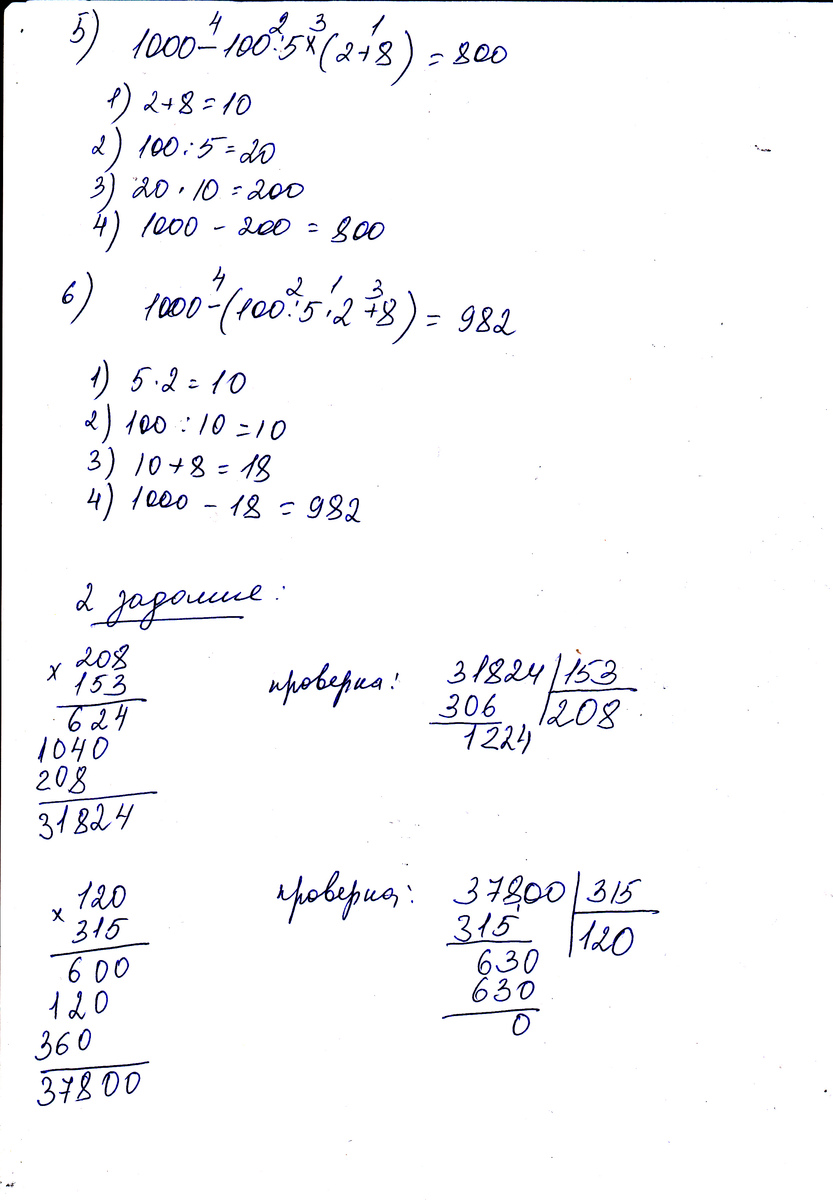 5) 1000 - 100 : 5 × (2 + 8) = 800
4 2 3 1
1) 2 + 8 = 10
2) 100 : 5 = 20
3) 20 · 10 = 200
4) 1000 - 200 = 800
6) 1000 - (100 : 5 · 2 + 8) = 982
4 2 1 3
1) 5 · 2 = 10
2) 100 : 10 = 10
3) 10 + 8 = 18
4) 1000 - 18 = 982
2 задание:
× 208
153
624
1040
208
31824
проверка:
31824 | 153
306 | 208
1224
× 120
315
600
120
360
37800
проверка:
37800 | 315
315 | 120
630
630
0